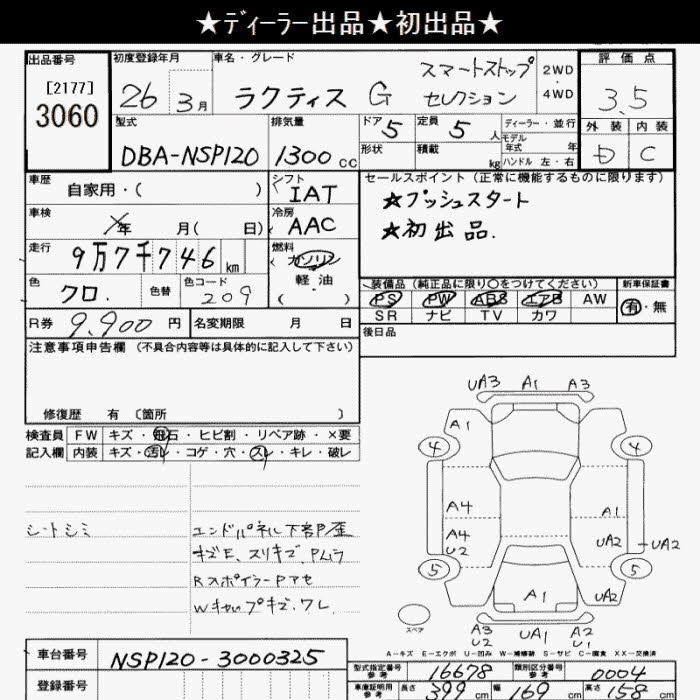 ★ディーラー出品★初出品★
出品番号
[2177]
3060
初度登録年月
26年 3月
車名・グレード
ラクティス G スマートストップ
セレクション
2WD
4WD
評価点
3.5
外装 内装
D C
型式
DBA-NSP120
排気量
1300cc
ドア 5
形状
定員 5人
積載 kg
ディーラー・並行
モデル
年式 年
ハンドル 左・右
車歴
自家用・( )
シフト
IAT
冷房
AAC
セールスポイント (正常に機能するものに限ります)
★プッシュスタート
★初出品.
車検
年 月( 日)
走行
9万7千746km
燃料
ガソリン
軽・油
( )
色
クロ.
色替
色コード
209
装備品 (純正品に限り○をつけてください)
PS PW ABS エアB AW
SR ナビ TV カワ
新車保証書
有・無
R券 9,900円
名変期限 月 日
後日品
注意事項申告欄 (不具合内容等は具体的に記入して下さい)
修復歴 有 〔箇所 〕
検査員
記入欄
FW キズ・飛石・ヒビ割・リペア跡・×要
内装 キズ・汚レ・コゲ・穴・スレ・キレ・破レ
シートシミ
エンドパネル下部P歪
キズE、スリキズ、Pムラ
RスポイラーPアセ
Wキャップキズ、ワレ
UA3 A1 A3
A1
4 4
A4 A1
A4
U2 UA2 UA2
5 5
A1 UA2
スペア
A3
U2 UA1 A2
U1
A-キズ E-エクボ U-凹み W-補修跡 S-サビ C-腐食 XX-交換済
車台番号 NSP120-3000325
登録番号
型式指定番号
参考
16678
類別区分番号
参考
0004
車庫証明用
参考
長さ 399cm 幅 169cm 高さ 158cm